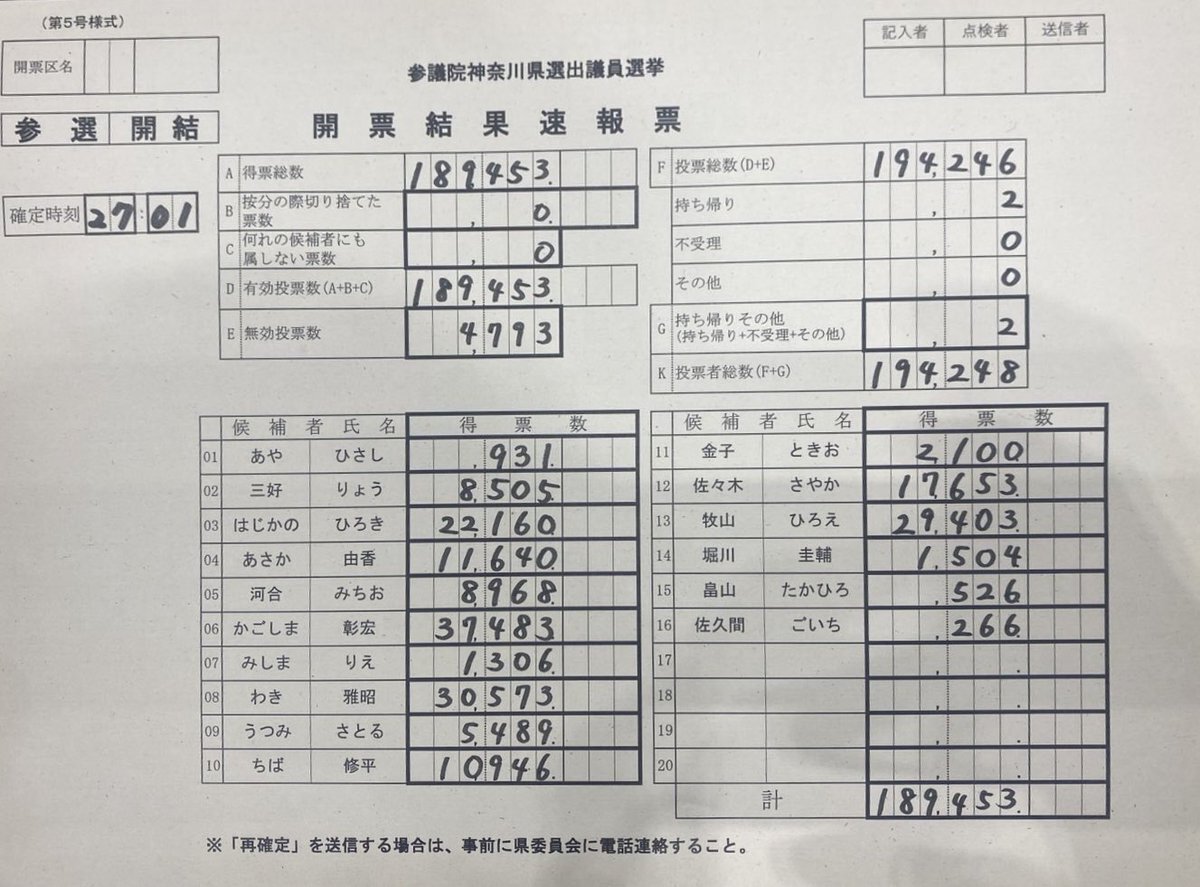 (第5号様式)
開票区名
記入者 点検者 送信者
参議院神奈川県選出議員選挙
参選 開結
開票結果速報票
確定時刻 27:01
A 得票総数 189,453.
B 按分の際切り捨てた
票数 , 0.
C 何れの候補者にも
属しない票数 , 0
D 有効投票数(A+B+C) 189,453.
E 無効投票数 4,793
F 投票総数(D+E) 194,246
持ち帰り , 2
不受理 , 0
その他 , 0
G 持ち帰りその他
(持ち帰り+不受理+その他) , 2
K 投票者総数(F+G) 194,248
候補者氏名 得票数
01 あや ひさし ,931.
02 三好 りょう 8,505.
03 はじかの ひろき 22,160.
04 あさか 由香 11,640.
05 河合 みちお 8,968.
06 かごしま 彰宏 37,483.
07 みしま りえ 1,306.
08 わき 雅昭 30,573.
09 うつみ さとる 5,489.
10 ちば 修平 10,946.
候補者氏名 得票数
11 金子 ときお 2,100
12 佐々木 さやか 17,653.
13 牧山 ひろえ 29,403.
14 堀川 圭輔 1,504
15 畠山 たかひろ ,526
16 佐久間 ごいち ,266.
17 , .
18 , .
19 , .
20 , .
計 189,453.
※「再確定」を送信する場合は、事前に県委員会に電話連絡すること。